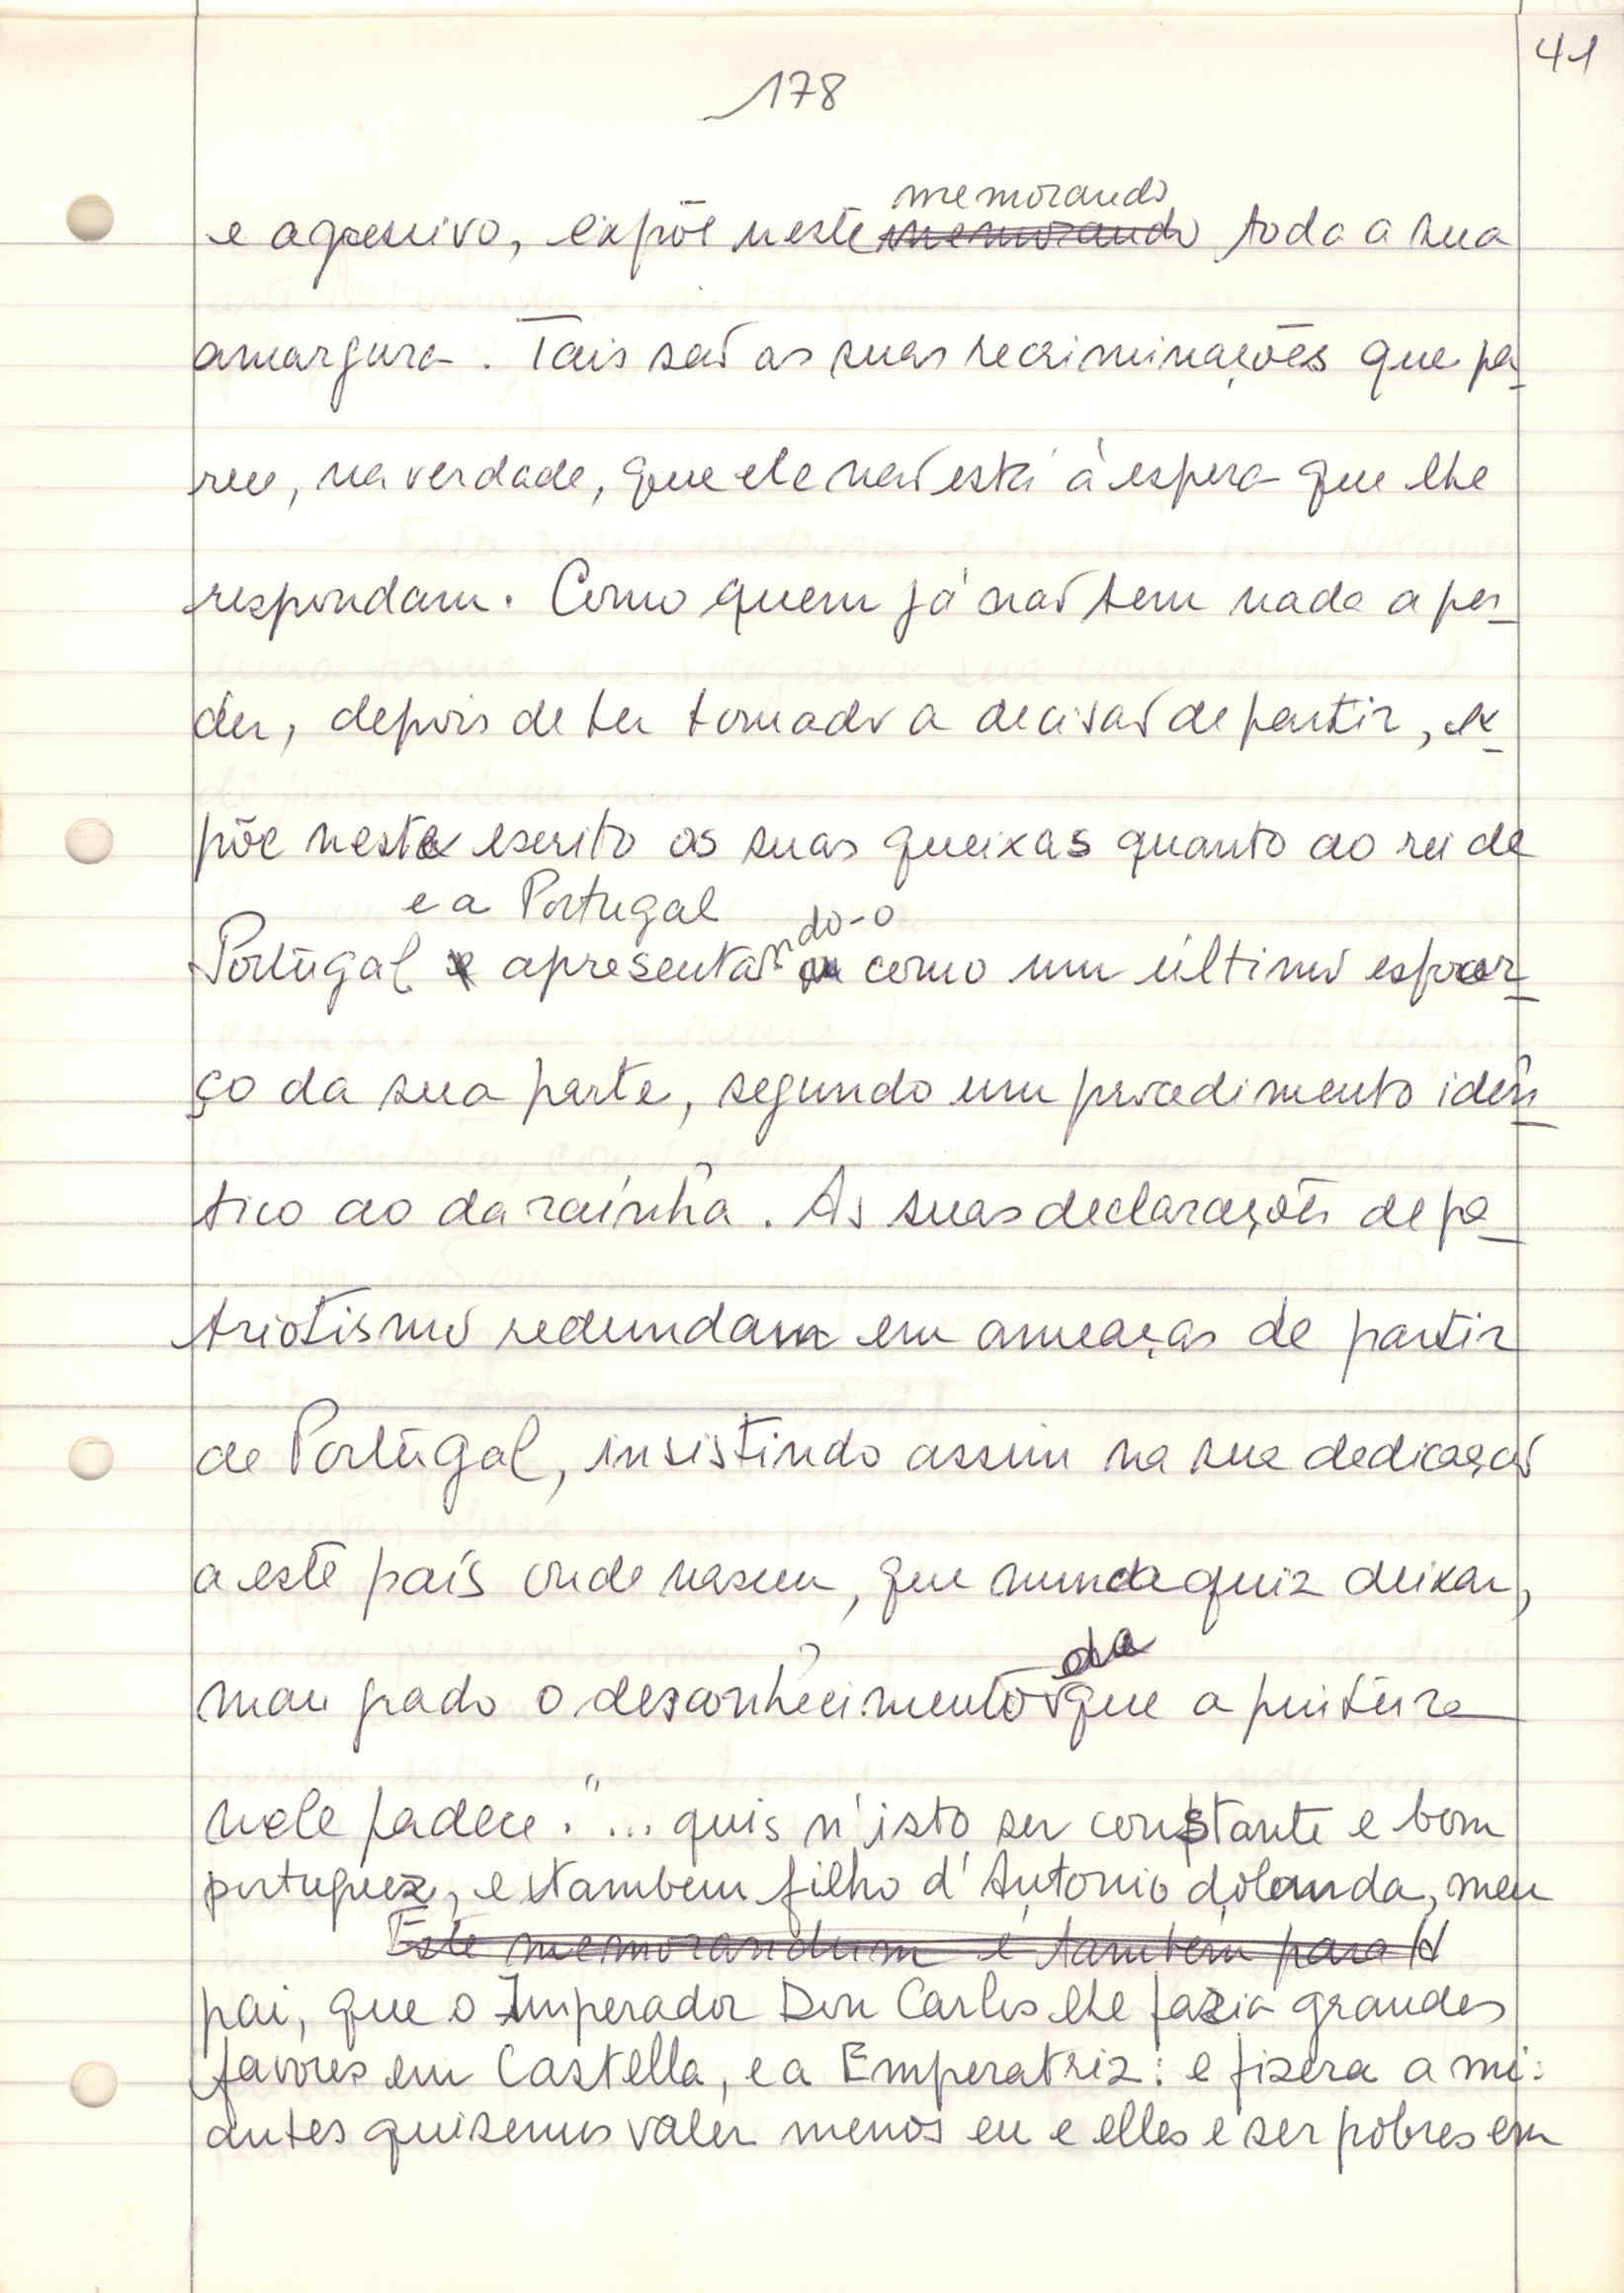 41
178
memorando
e agressivo, expõe neste memorando toda a sua
amargura. Tais são as suas recriminações que pa-
rece, na verdade, que ele não está à espera que lhe
respondam. Como quem já não tem nada a per-
der, depois de ter tomado a decisão de partir, ex-
põe neste escrito as suas queixas quanto ao rei de
e a Portugal do-o
Portugal e apresentan como um último esfor-
ço da sua parte, segundo um procedimento idên-
tico ao da rainha. As suas declarações de pa-
triotismo redundam em ameaças de partir
de Portugal, insistindo assim na sua dedicação
a este país onde nasceu, que nunca quiz deixar,
da
mau grado o desconhecimento que a pintura
nele padece. "... quis n'isto ser constante e bom
portuguez, e tambem filho d'Antonio dolanda, meu
Este memorandum é também para A
pai, que o Imperador Don Carlos lhe fazia grandes
favores em Castella, e a Emperatriz: e fizera a mi:
antes quisemos valer menos eu e elles e ser pobres em